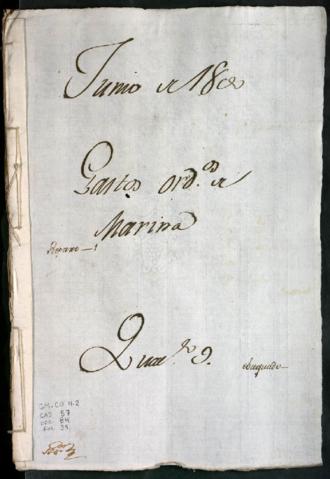 Junio de 180
Gastos ord.os de
Marina
Reparo — 1
Qua.no 9.
GM-CO 4.2
CAJ 57
DOC 84
FOL 39